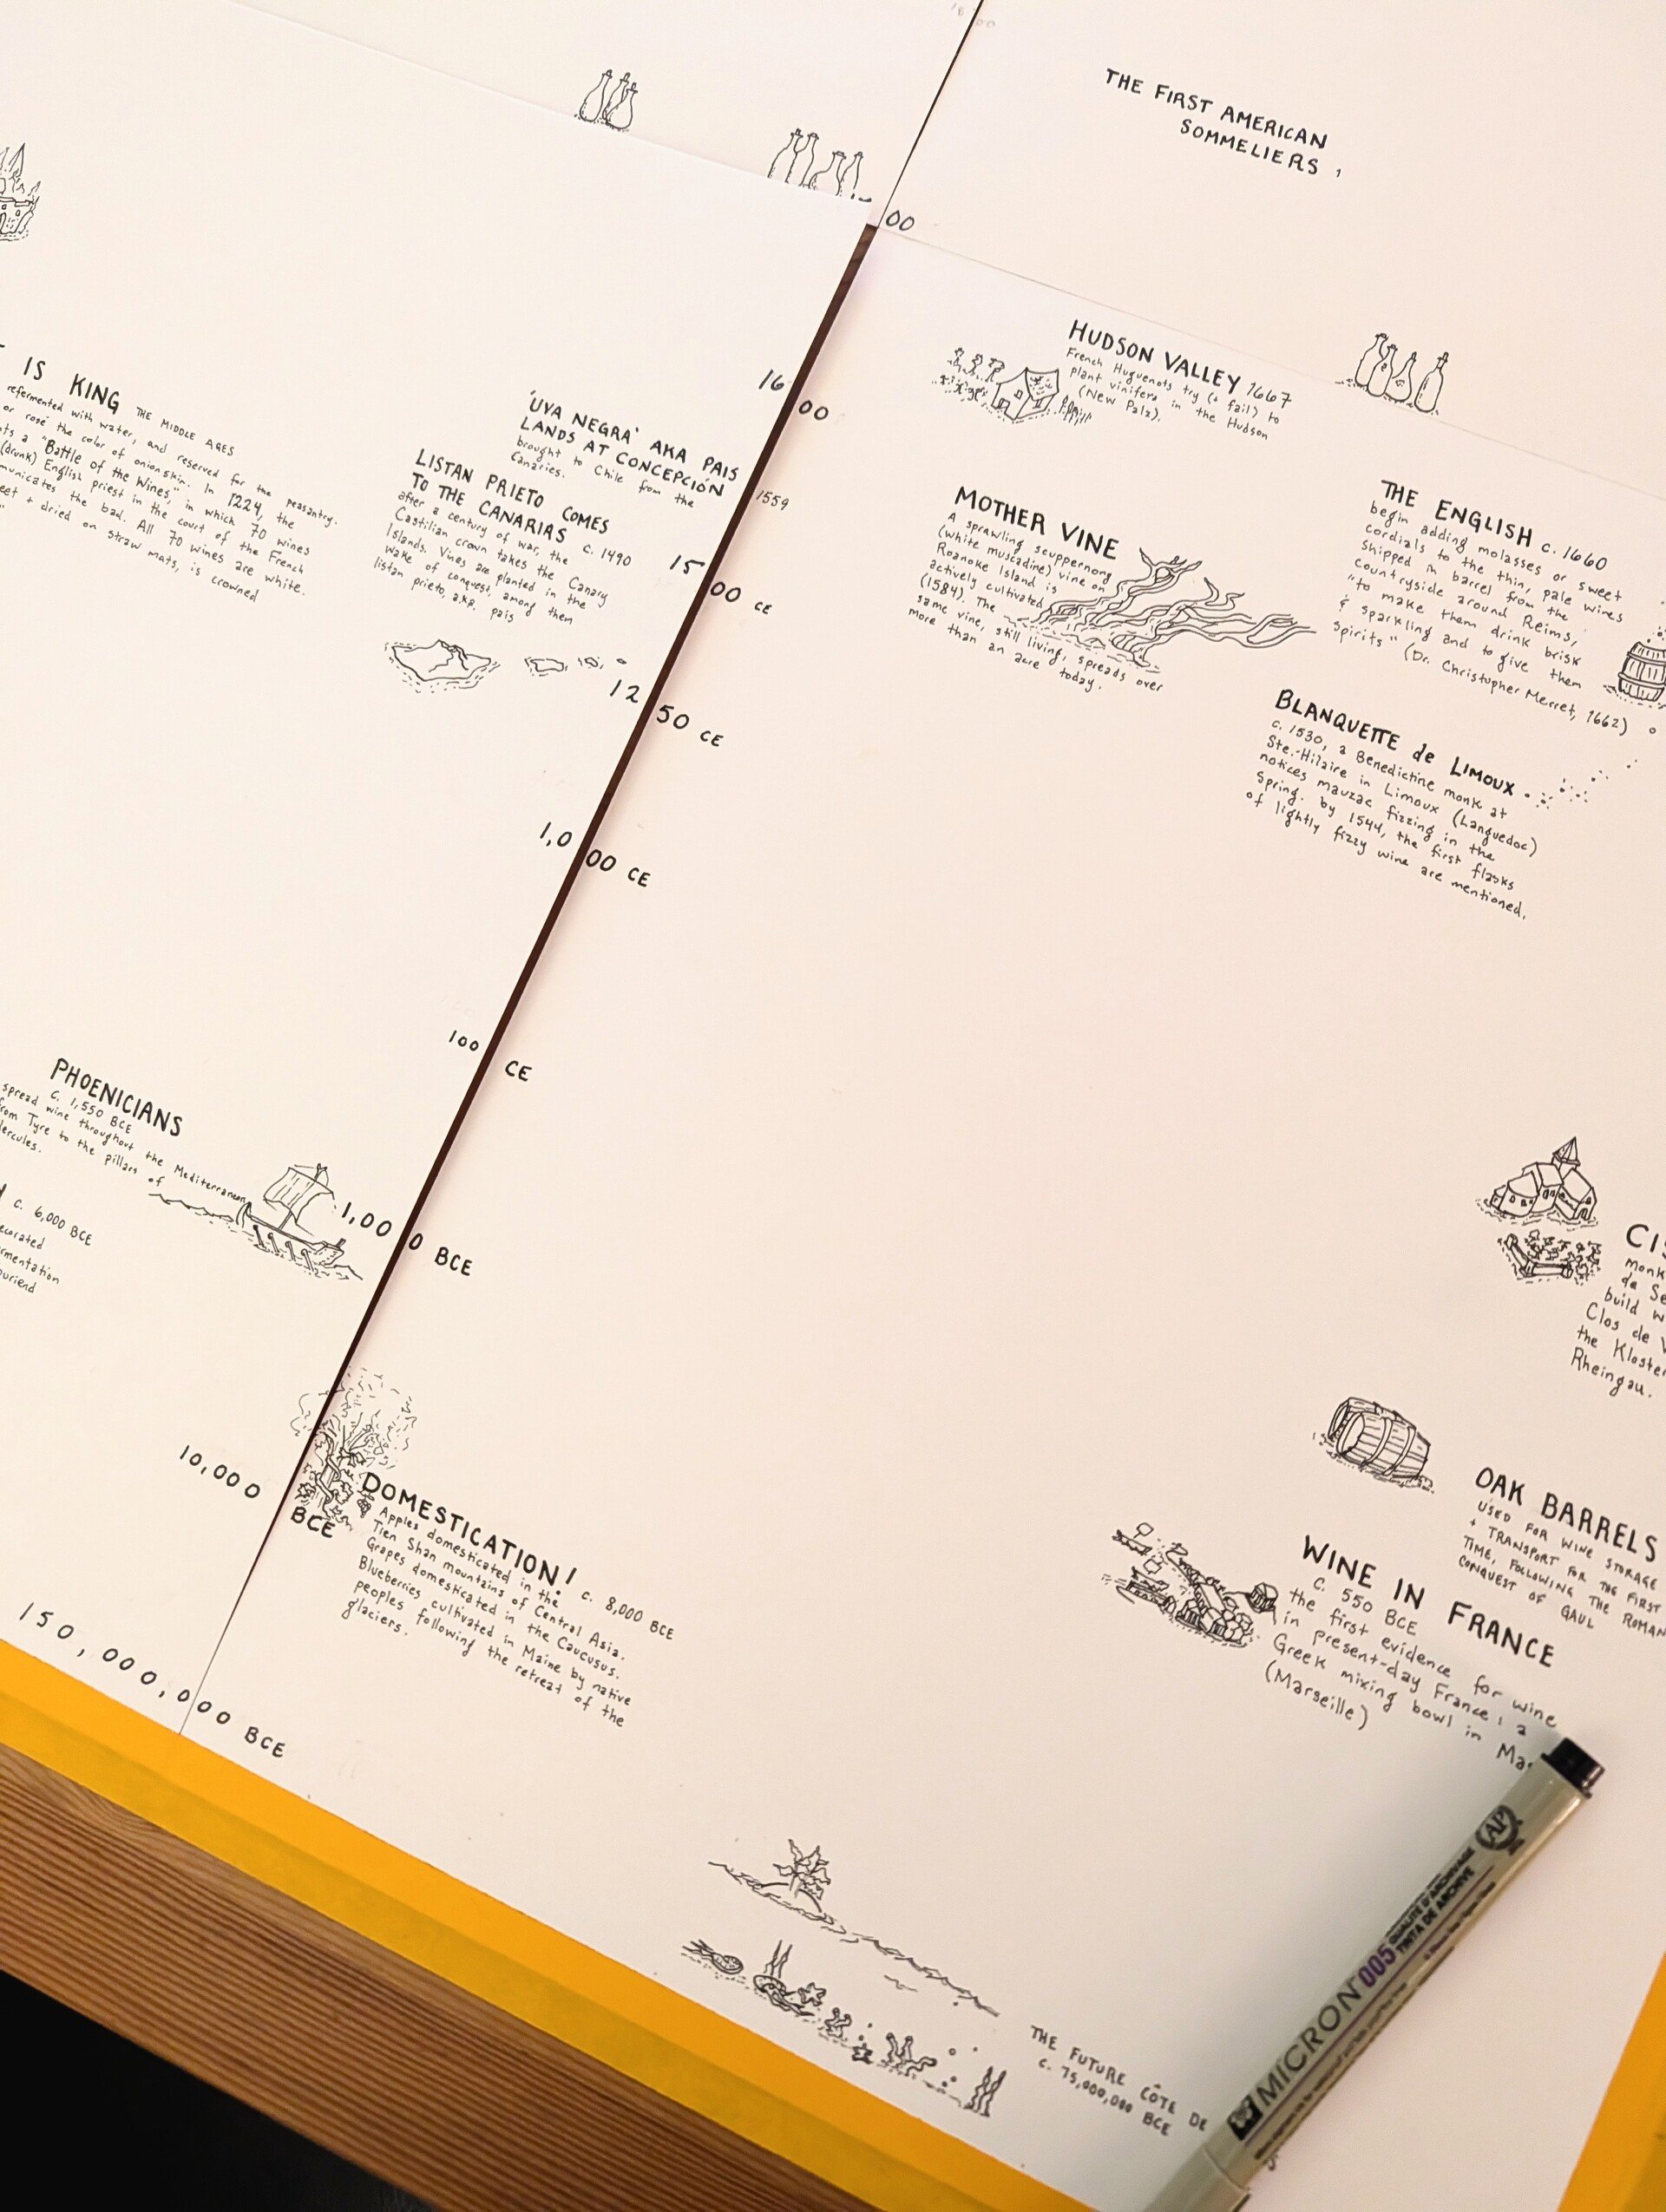 THE FIRST AMERICAN
SOMMELIERS,
00
HUDSON VALLEY 1667
French Huguenots try (+ fail) to
plant vinifera in the Hudson
(New Palz).
IS KING THE MIDDLE AGES
refermented with water, and reserved for the peasantry.
or rosé the color of onionskin. In 1224, the
a "Battle of the Wines," in which 70 wines
(drunk) English priest in the court of the French
the bad. All 70 wines are white.
+ dried on straw mats, is crowned
16 00
'UVA NEGRA' AKA PAIS
LANDS AT CONCEPCIÓN
brought to Chile from the
Canaries.
1559
LISTAN PRIETO COMES
TO THE CANARIAS c. 1490
after a century of war, the
Castilian crown takes the Canary
Islands. Vines are planted in the
wake of conquest, among them
listan prieto, a.k.a. pais
1500 CE
1250 CE
1,000 CE
100 CE
MOTHER VINE
A sprawling scuppernong
(white muscadine) vine on
Roanoke Island is
actively cultivated
(1584). The
same vine, still living, spreads over
more than an acre today.
THE ENGLISH c. 1660
begin adding molasses or sweet
cordials to the thin, pale wines
shipped in barrel from the
countryside around Reims,
"to make them drink brisk
& sparkling and to give them
spirits" (Dr. Christopher Merret, 1662)
BLANQUETTE de LIMOUX
c. 1530, a Benedictine monk at
Ste.-Hilaire in Limoux (Languedoc)
notices mauzac fizzing in the
Spring. by 1544, the first flasks
of lightly fizzy wine are mentioned.
PHOENICIANS
c. 1,550 BCE
spread wine throughout the Mediterranean,
from Tyre to the pillars of
c. 6,000 BCE
1,000 BCE
monk
build
Clos de
the
Rheingau.
OAK BARRELS
USED FOR WINE STORAGE
+ TRANSPORT FOR THE FIRST
TIME, FOLLOWING THE ROMAN
CONQUEST OF GAUL
WINE IN FRANCE
c. 550 BCE
the first evidence for wine
in present-day France: a
Greek mixing bowl in
(Marseille)
10,000 BCE
DOMESTICATION! c. 8,000 BCE
Apples domesticated in the
Tien Shan mountains of Central Asia.
Grapes domesticated in the Caucusus.
Blueberries cultivated in Maine by native
peoples following the retreat of the
glaciers.
150,000,000 BCE
THE FUTURE CÔTE DE
c. 75,000,000 BCE
MICRON 005
QUALITÉ D'ARCHIVAGE
TINTA DE ARCHIVE
AP